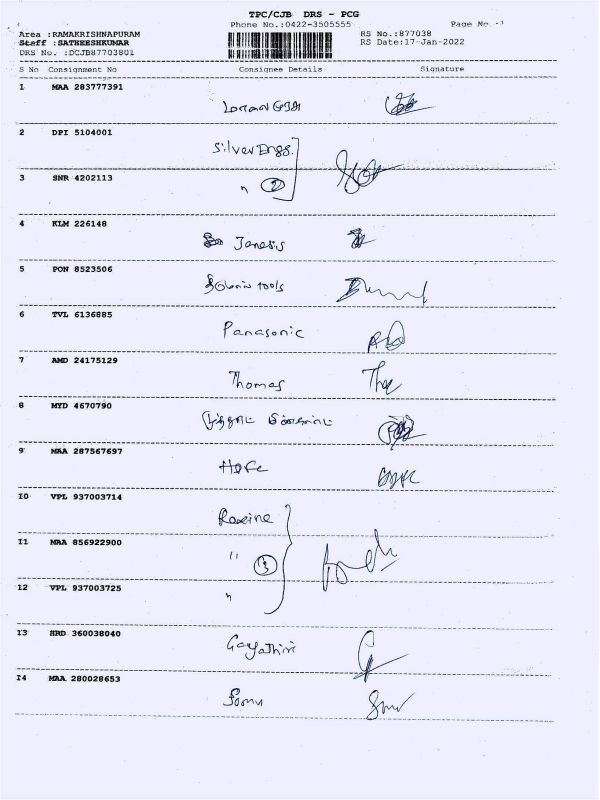 TPC/CJB DRS - PCG
Phone No.:0422-3505555
Area :RAMAKRISHNAPURAM
Staff :SATHEESHKUMAR
DRS No. :DCJB87703801
Page No.
RS No.:877038
RS Date:17-Jan-2022
S No Consignment No Consignee Details Signature
1 MAA 283777391
2 DPI 5104001
Silver Engg.
3 SNR 4202113
" 2
4 KLM 226148
Janesis
5 PON 8523506
tools
6 TVL 6136885
Panasonic
7 AMD 24175129
Thomas
8 MYD 4670790
9 MAA 287567697
10 VPL 937003714
11 MAA 856922900
" 3
12 VPL 937003725
"
13 HRD 360038040
Gayathiri
14 MAA 280028653